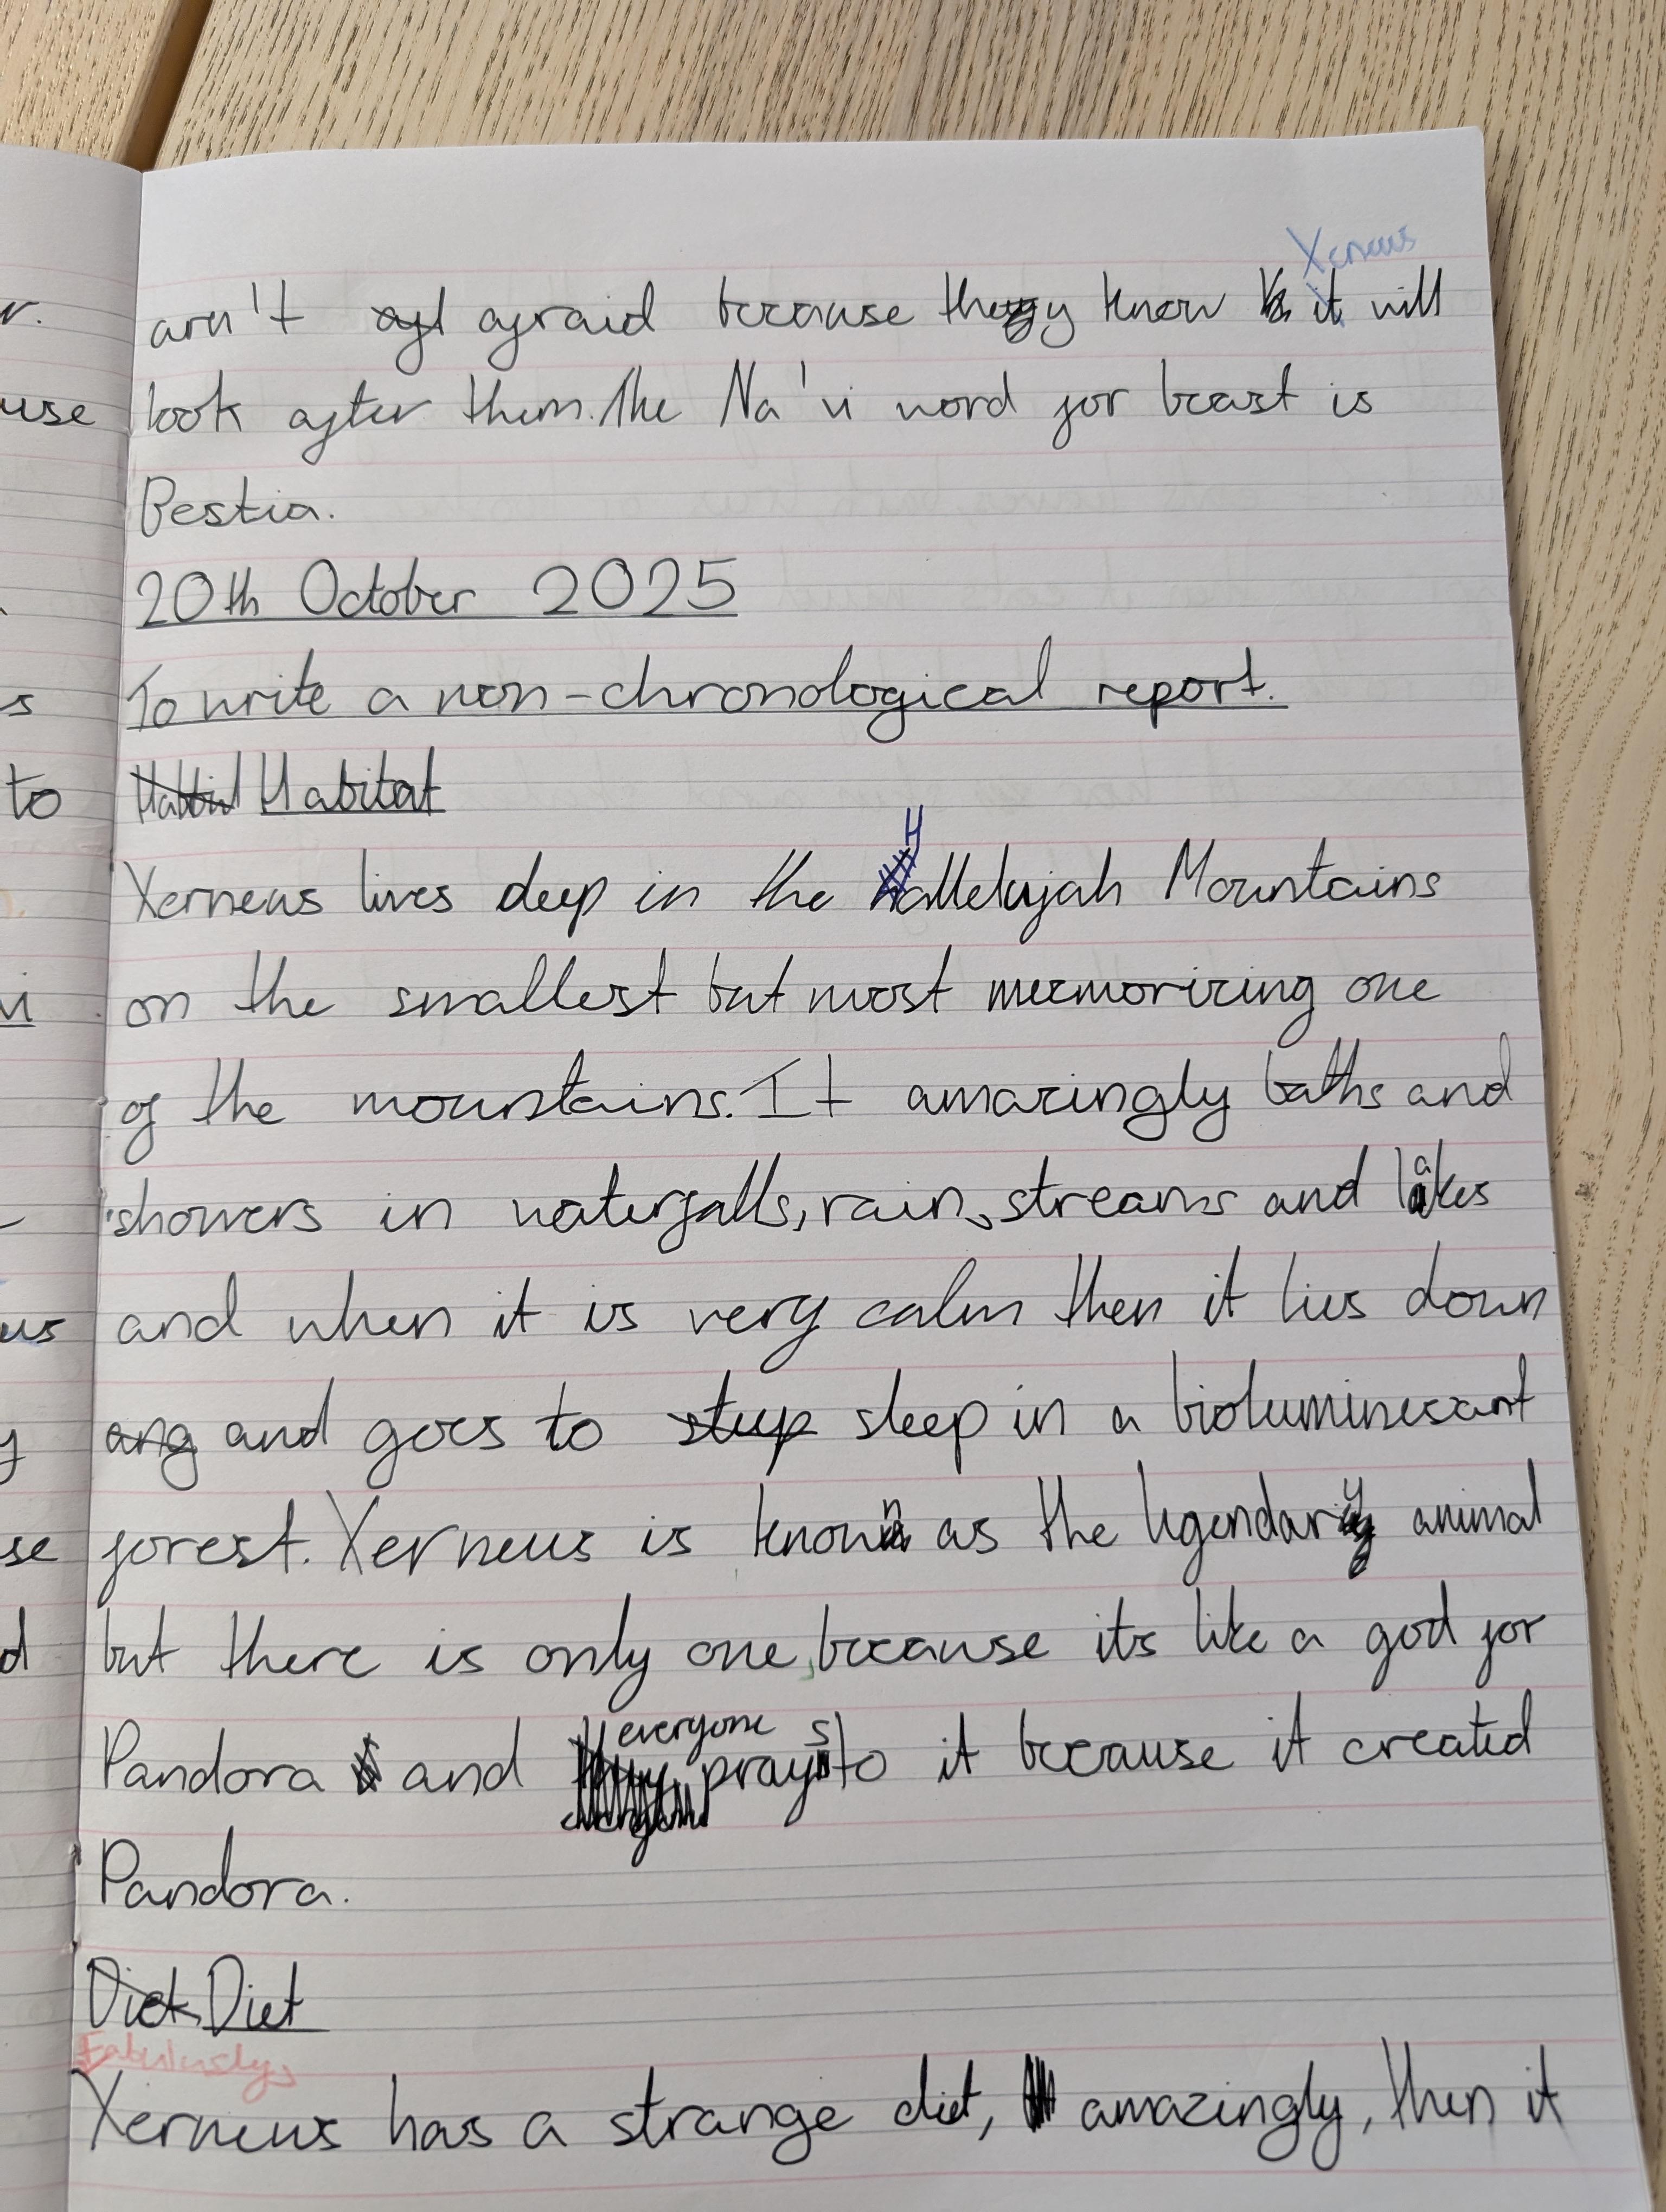 Xerneus
aren't afraid because they know it will
look after them. The Na'vi word for beast is
Bestia.
20th October 2025
To write a non-chronological report.
Habitat
H
Xerneus lives deep in the hallelujah Mountains
on the smallest but most mermorizing one
of the mountains. It amazingly baths and
showers in waterfalls, rain, streams and lakes
and when it is very calm then it lies down
and goes to sleep in a bioluminesant
forest. Xerneus is known as the legendary animal
but there is only one, because its like a god for
Pandora and everyone prays to it because it created
Pandora.
Diet
Fabulusly,
Xerneus has a strange diet, amazingly, then it
r.
use
s
to
vi
us
y
se
d